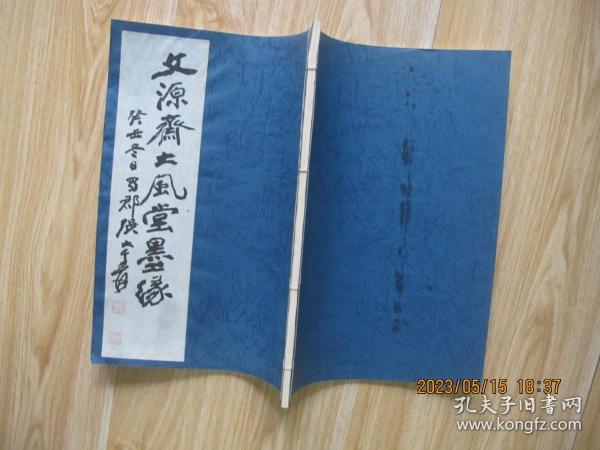 文源斋大风堂墨缘
癸丑冬日蜀郡张大千爰
2023/05/15 18:37
孔夫子旧书网
www.kongfz.com